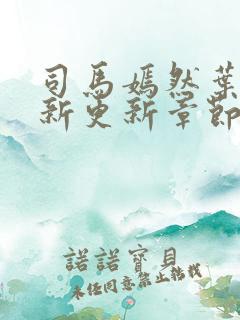 司馬嫣然葉
新更新章節
諾諾寶貝
未任同意禁止轉載